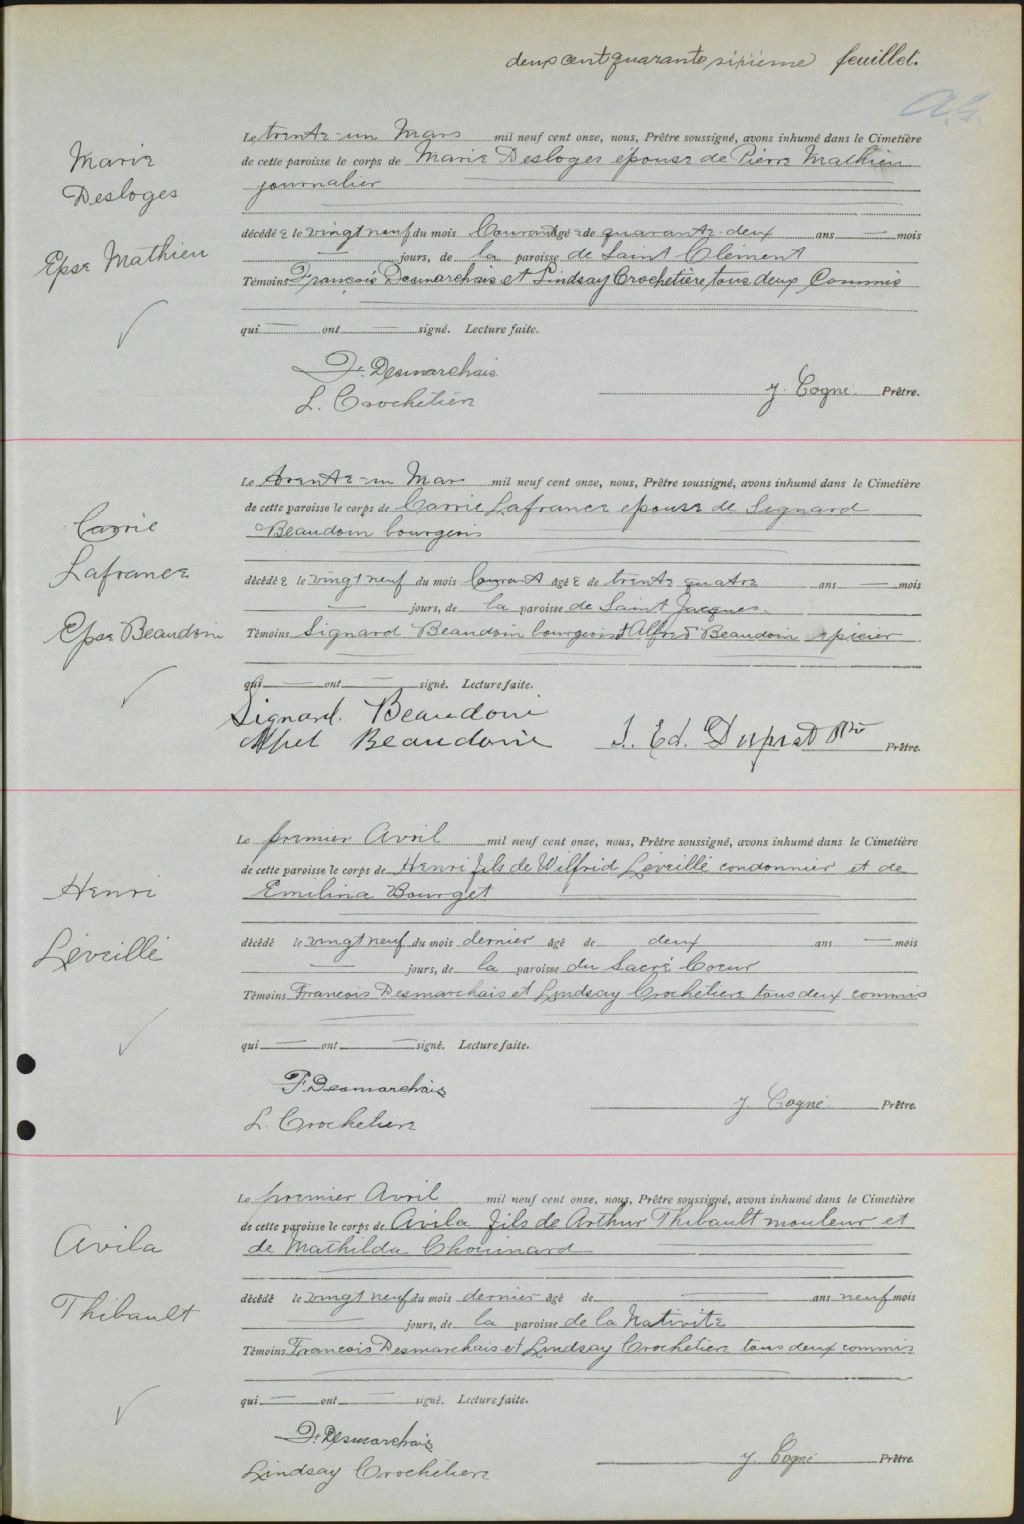 deux cent quarante sixième feuillet.
Marie
Desloges
Epse Mathieu
Le trente-un Mars mil neuf cent onze, nous, Prêtre soussigné, avons inhumé dans le Cimetière
de cette paroisse le corps de Marie Desloges épouse de Pierre Mathieu
journalier
décédée le vingt neuf du mois Courant âgée de quarante-deux ans — mois
— jours, de la paroisse de Saint Clément
Témoins François Desmarchais et Lindsay Crochetière tous deux Commis
qui — ont — signé. Lecture faite.
F. Desmarchais
L. Crochetière
J. Cogné. Prêtre.
Carrie
Lafrance
Epse Beaudoin
Le trente-un Mars mil neuf cent onze, nous, Prêtre soussigné, avons inhumé dans le Cimetière
de cette paroisse le corps de Carrie Lafrance épouse de Signard
Beaudoin bourgeois
décédée le vingt neuf du mois Courant âgée de trente quatre ans — mois
— jours, de la paroisse de Saint Jacques
Témoins Signard Beaudoin bourgeois & Alfred Beaudoin epicier
qui — ont — signé. Lecture faite.
Signard. Beaudoin
Beaudoin
Ed. Duprat Ptre Prêtre.
Henri
Léveillé
Le premier Avril mil neuf cent onze, nous, Prêtre soussigné, avons inhumé dans le Cimetière
de cette paroisse le corps de Henri fils de Wilfrid Léveillé condonnier et de
Emilina Bourget
décédé le vingt neuf du mois dernier âgé de deux ans — mois
— jours, de la paroisse du Sacré Coeur
Témoins Francois Desmarchais et Lindsay Crochetière tous deux commis
qui — ont — signé. Lecture faite.
F. Desmarchais
L. Crochetière
J. Cogné. Prêtre.
Avila
Thibault
Le premier Avril mil neuf cent onze, nous, Prêtre soussigné, avons inhumé dans le Cimetière
de cette paroisse le corps de Avila fils de Arthur Thibault mouleur et
de Mathilda Chouinard
décédé le vingt neuf du mois dernier âgé de — ans neuf mois
— jours, de la paroisse de la Nativité
Témoins Francois Desmarchais et Lindsay Crochetière tous deux commis
qui — ont — signé. Lecture faite.
F. Desmarchais
Lindsay Crochetière
J. Cogné Prêtre.